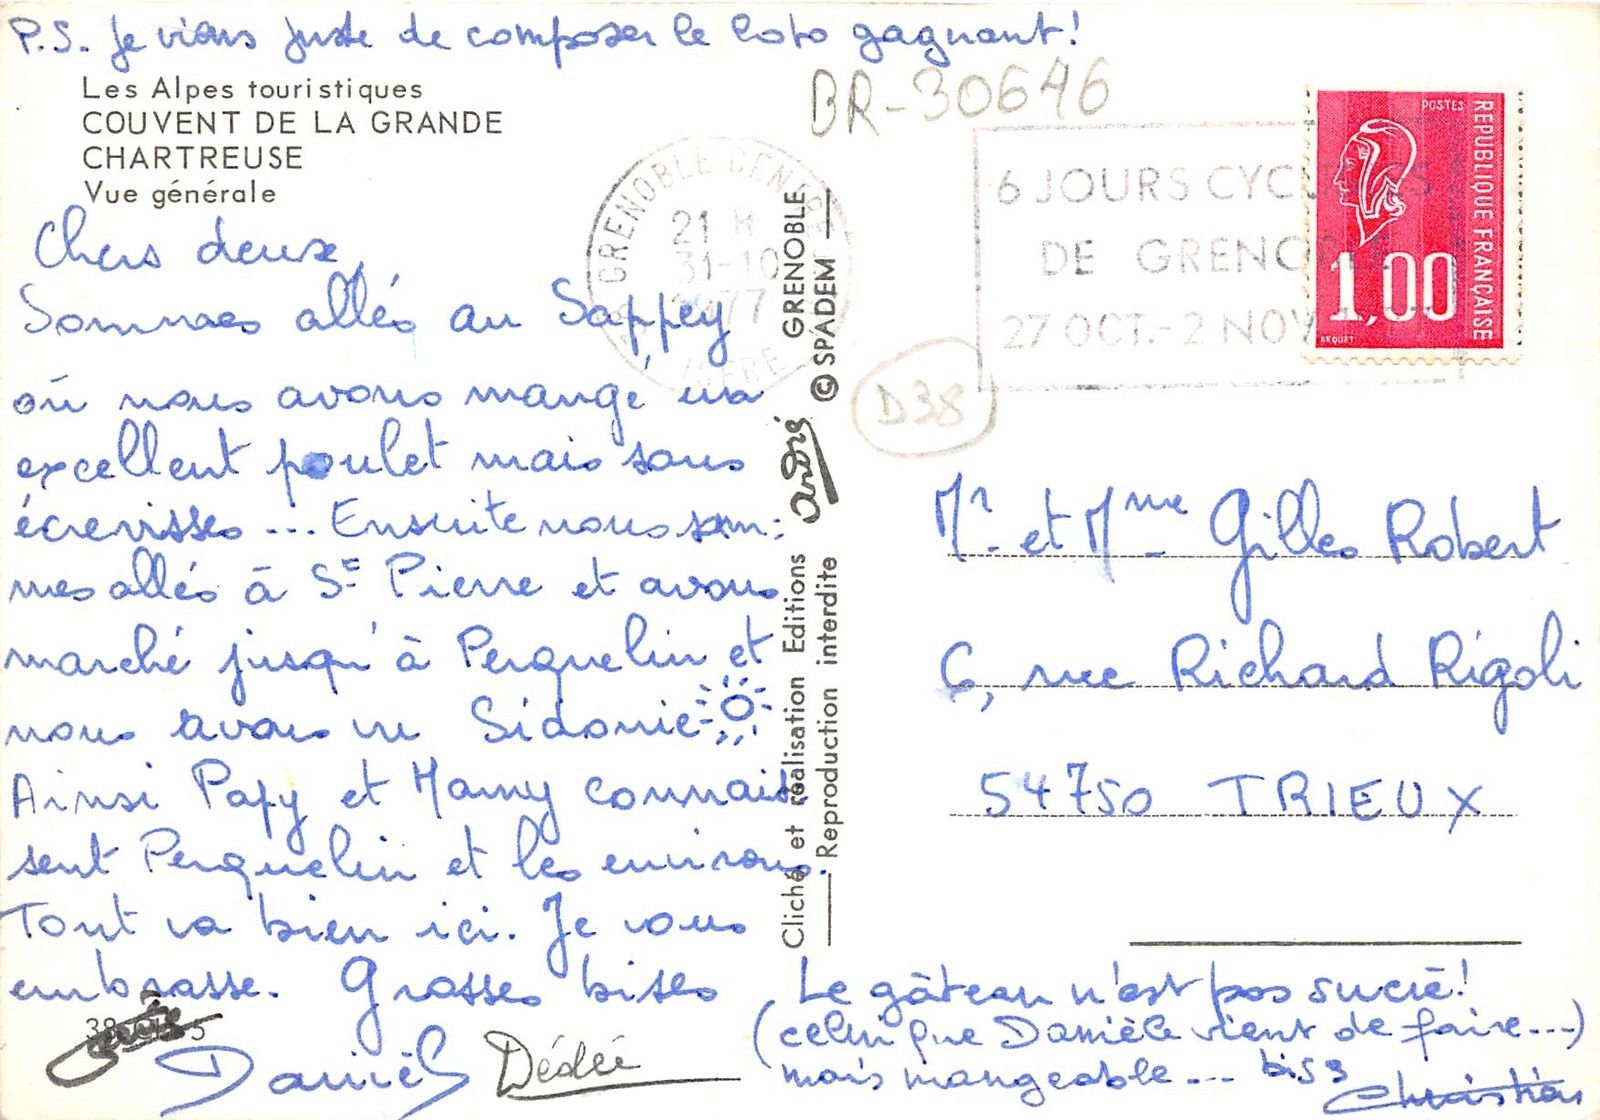 P.S. Je viens juste de composer le loto gagnant!
Les Alpes touristiques
COUVENT DE LA GRANDE
CHARTREUSE
Vue générale
Chers deux,
Sommes allés au Sappey
où nous avons mangé un
excellent poulet mais sans
écrevisses... Ensuite nous som=
mes allés à St Pierre et avons
marché jusqu'à Perquelin et
nous avons vu Sidonie
Ainsi Papy et Mamy connais
sent Perquelin et les environs.
Tout va bien ici. Je vous
embrasse. Grosses bises
Danièle
Dédée
BR-30646
GRENOBLE
21 H
31-10
1977
ISERE
6 JOURS CYCLISTES
DE GRENOBLE
27 OCT.-2 NOV
POSTES
REPUBLIQUE FRANÇAISE
1,00
BEQUET
D38
Cliché et réalisation Editions André GRENOBLE
Reproduction interdite © SPADEM
Mr et Mme Gilles Robert
6, rue Richard Rigoli
54750 TRIEUX
Le gâteau n'est pas sucré!
(celui que Danièle vient de faire...)
mais mangeable... bises
Christian